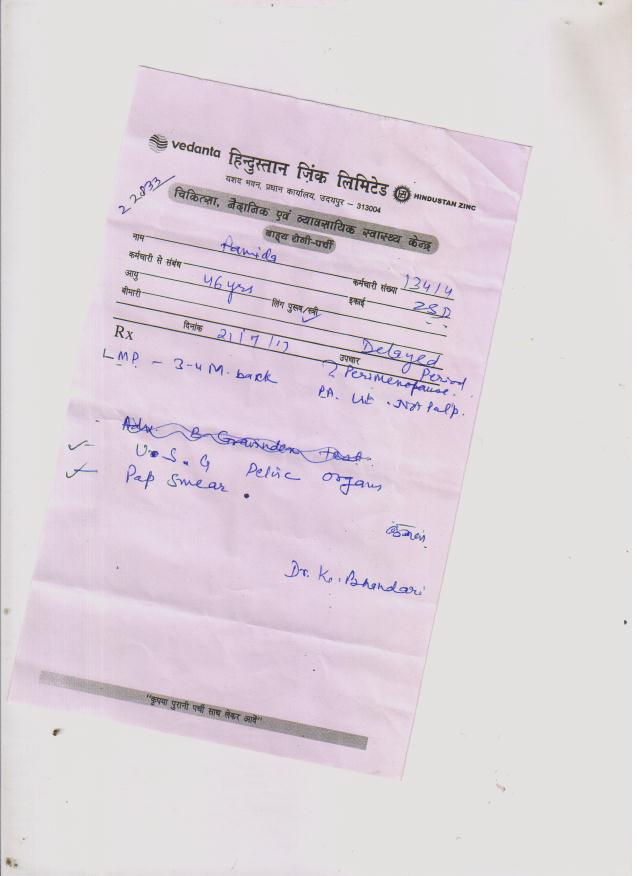 vedanta हिन्दुस्तान ज़िंक लिमिटेड HINDUSTAN ZINC
यशद भवन, प्रधान कार्यालय, उदयपुर – 313004
22833
चिकित्सा, नैदानिक एवं व्यावसायिक स्वास्थ्य केन्द्र
बाह्य रोगी-पर्ची
नाम
कर्मचारी से संबंध कर्मचारी संख्या 13414
आयु 46 yrs लिंग पुरूष/स्त्री ✓ इकाई ZSD
बीमारी
Rx दिनांक 21/7/17 उपचार Delayed Period
LMP. – 3-4 M. back ? Perimenopause.
PA. Ut. Not Palp.
✓ U.S.G Pelvic organs
✓ Pap Smear.
Dr. K. Bhandari
"कृपया पुरानी पर्ची साथ लेकर आवें"